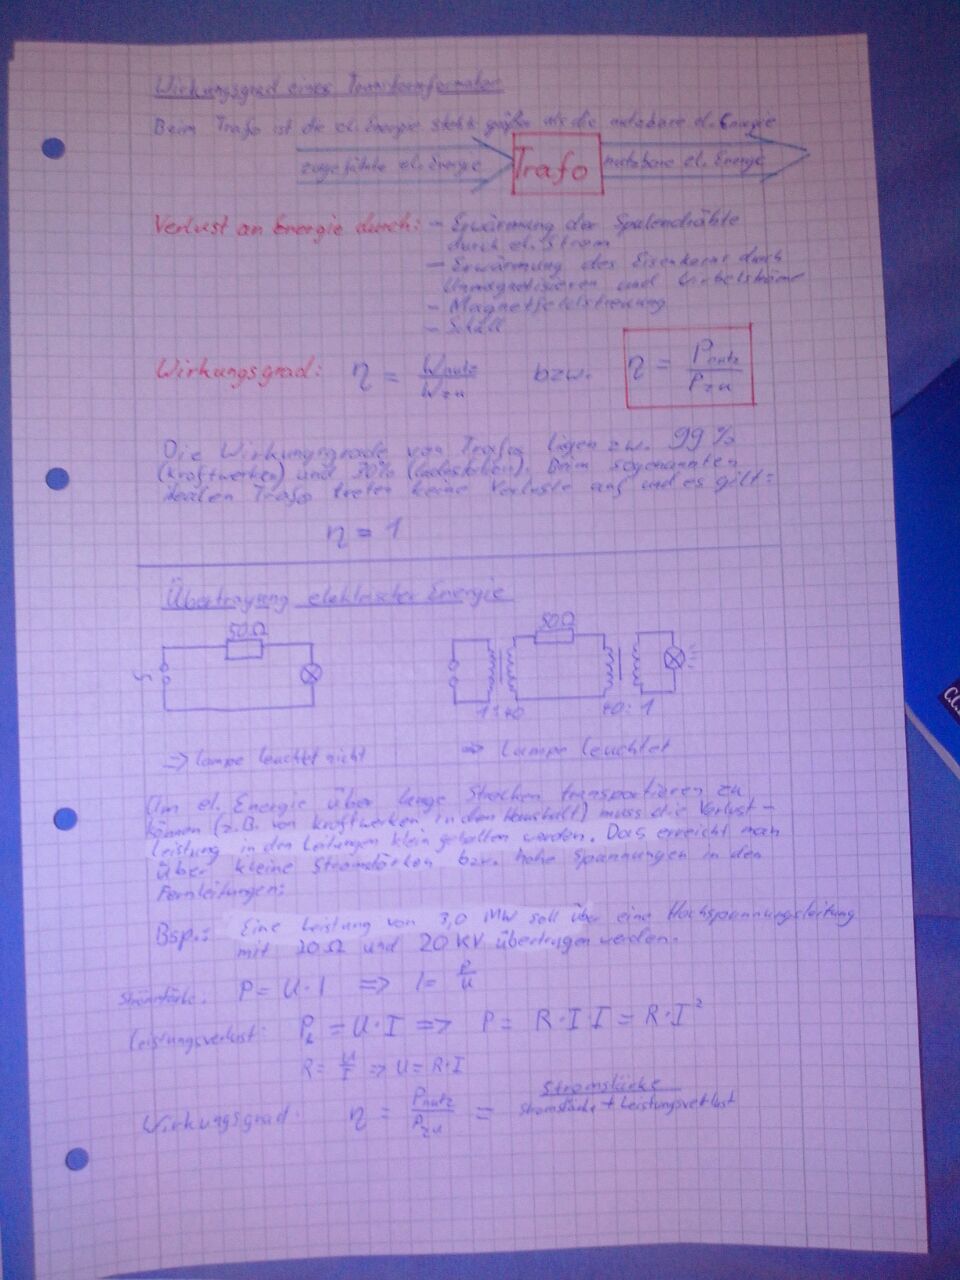 Wirkungsgrad eines Transformformator
Beim Trafo ist die el. Energie stehts größer als die nutzbare el. Energie
zugeführte el. Energie Trafo nutzbare el. Energie
Verlust an Energie durch: - Erwärmung der Spulendrähte
durch el. Strom
- Erwärmung des Eisenkerns durch
Ummagnetisieren und Wirbelströme
- Magnetfeldstreuung
- Schall
Wirkungsgrad: η = Wnutz/Wzu bzw. η = Pnutz/Pzu
Die Wirkungsgrade von Trafos liegen zw. 99%
(Kraftwerken) und 30% Beim sogenannten
idealen Trafo treten keine Verluste auf und es gilt:
η = 1
Übertragung elektrischer Energie
50Ω 50Ω
1:40 40:1
=> Lampe leuchtet nicht => Lampe leuchtet
Um el. Energie über lange Strecken transportieren zu
können (z.B. von Kraftwerken in den Haushalt) muss die Verlust-
leistung in den Leitungen klein gehalten werden. Das erreicht man
über kleine Stromstärken bzw. hohe Spannungen in den
Fernleitungen:
Bsp.: Eine Leistung von 3,0 MW soll über eine Hochspannungsleitung
mit Ω und 20 KV übertragen werden.
Stromstärke: P = U · I => I = P/U
Leistungsverlust: PL = U · I => P = R · I · I = R · I²
R = U/I => U = R · I
Wirkungsgrad: η = Pnutz/Pzu = Stromstärke/Stromstärke + Leistungsverlust
C.C.